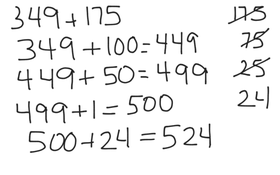 349+175
349+100=449
449+50=499
499+1=500
500+24=524
175
75
25
24